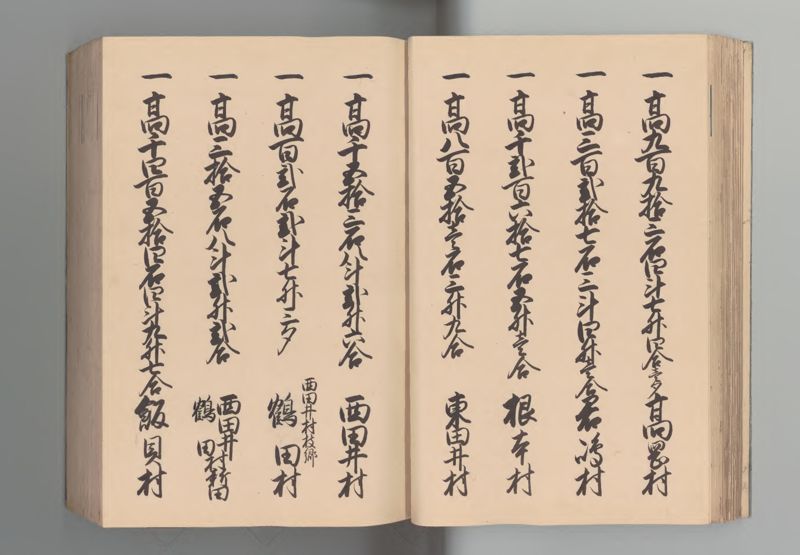 一 高九百九拾三石四斗七升四合壱夕 高岡村
一 高三百弐拾七石三斗四升壱合 若嶋村
一 高千弐百六拾七石五升壱合 根本村
一 高八百五拾壱石三升九合 東田井村
一 高千五拾三石八斗弐升六合 西田井村
一 高百弐石弐斗七升三夕 西田井村枝郷 鶴田村
一 高三拾五石八斗弐升弐合 西田井村新田 鶴田村
一 高千四百五拾四石四斗九升七合 飯貝村